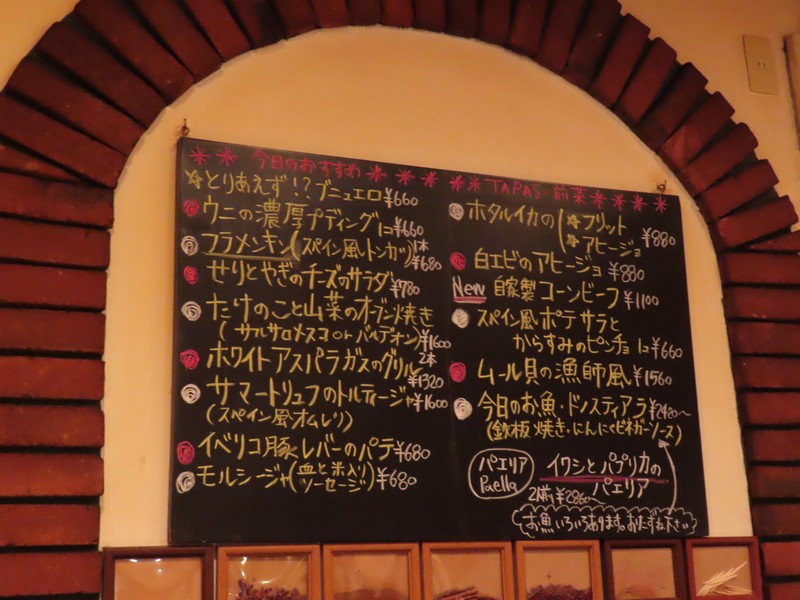 今日のおすすめ
☆とりあえず!?ブニュエロ ¥660
ウニの濃厚プディング 1コ ¥660
フラメンキン(スペイン風トンカツ)1本 ¥680
せりとやぎのチーズのサラダ ¥780
たけのこと山菜のオーブン焼き
(サルサロメスコ or バルデオン) ¥1600
ホワイトアスパラガスのグリル 2本 ¥1320
サマートリュフのトルティージャ ¥1600
(スペイン風オムレツ)
イベリコ豚レバーのパテ ¥680
モルシージャ(血と米入りソーセージ) ¥680
TAPAS・前菜
ホタルイカの(☆フリット
☆アヒージョ ¥880
白エビのアヒージョ ¥880
New 自家製コーンビーフ ¥1100
スペイン風ポテサラと
からすみのピンチョ 1コ ¥660
ムール貝の漁師風 ¥1560
今日のお魚・ドノスティアラ ¥2480〜
(鉄板焼き・にんにくビネガーソース)
パエリア
Paella
イワシとパプリカの
パエリア
2人前 ¥2860
お魚いろいろあります。おたずね下さい